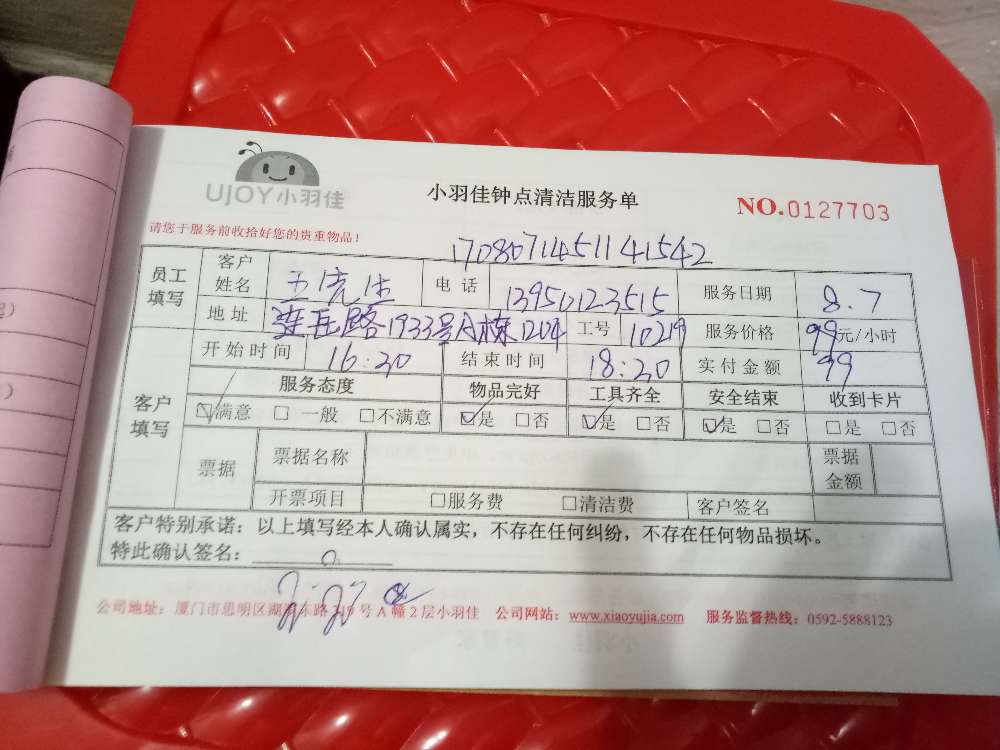 UJOY小羽佳
小羽佳钟点清洁服务单
NO.0127703
请您于服务前收拾好您的贵重物品！
17080711451141542
员工填写 客户姓名 电话 13950123515 服务日期 8.7
地址 1933号A栋1204 工号 10219 服务价格 99元/小时
开始时间 16:30 结束时间 18:30 实付金额 99
客户填写 服务态度 物品完好 工具齐全 安全结束 收到卡片
☑满意 □一般 □不满意 ☑是 □否 ☑是 □否 ☑是 □否 □是 □否
票据 票据名称 票据金额
开票项目 □服务费 □清洁费 客户签名
客户特别承诺：以上填写经本人确认属实，不存在任何纠纷，不存在任何物品损坏。
特此确认签名：
公司地址：厦门市思明区湖滨东路319号A幢2层小羽佳 公司网站：www.xiaoyujia.com 服务监督热线：0592-5888123